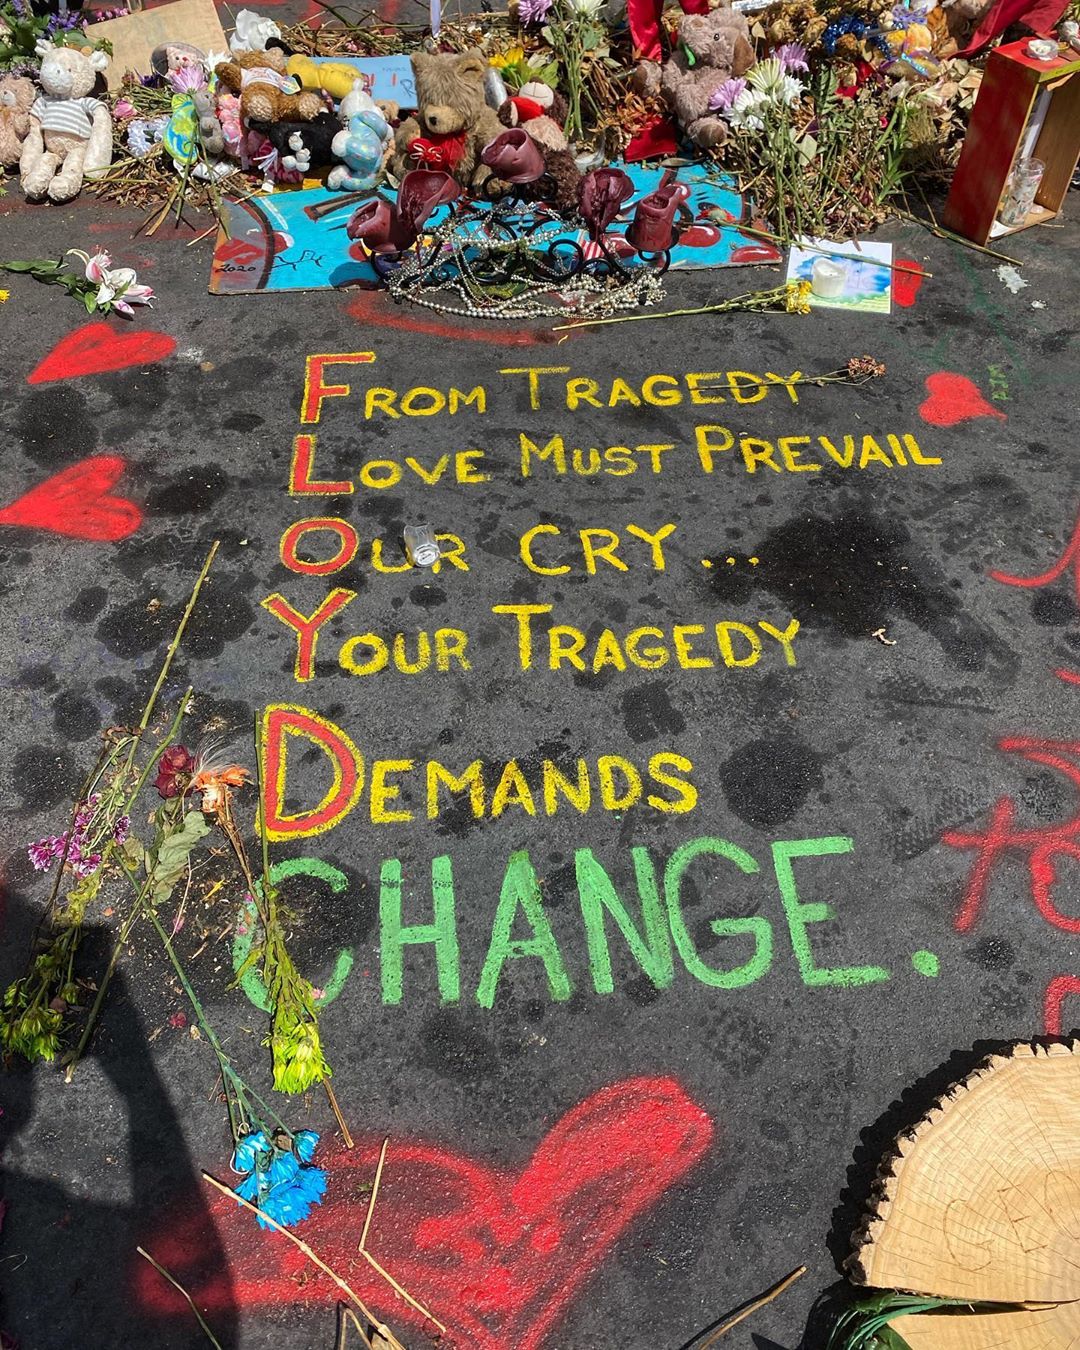 2020
FROM TRAGEDY
LOVE MUST PREVAIL
OUR CRY...
YOUR TRAGEDY
DEMANDS
CHANGE.